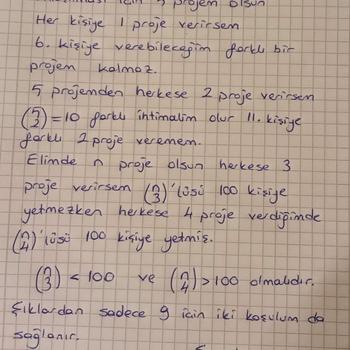 için 5 projem olsun
Her kişiye 1 proje verirsem
6. kişiye verebileceğim farklı bir
projem kalmaz.
5 projemden herkese 2 proje verirsem
(5 2) = 10 farklı ihtimalim olur 11. kişiye
farklı 2 proje veremem.
Elimde n proje olsun herkese 3
proje verirsem (n 3)'lüsü 100 kişiye
yetmezken herkese 4 proje verdiğimde
(n 4)'lüsü 100 kişiye yetmiş.
(n 3) < 100 ve (n 4) > 100 olmalıdır.
Şıklardan sadece 9 için iki koşulum da
sağlanır.